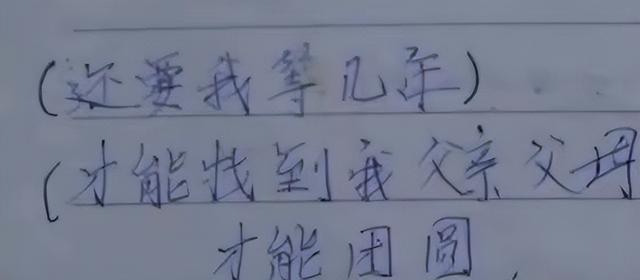 (还要我等几年)
(才能找到我父亲父母
才能团圆.